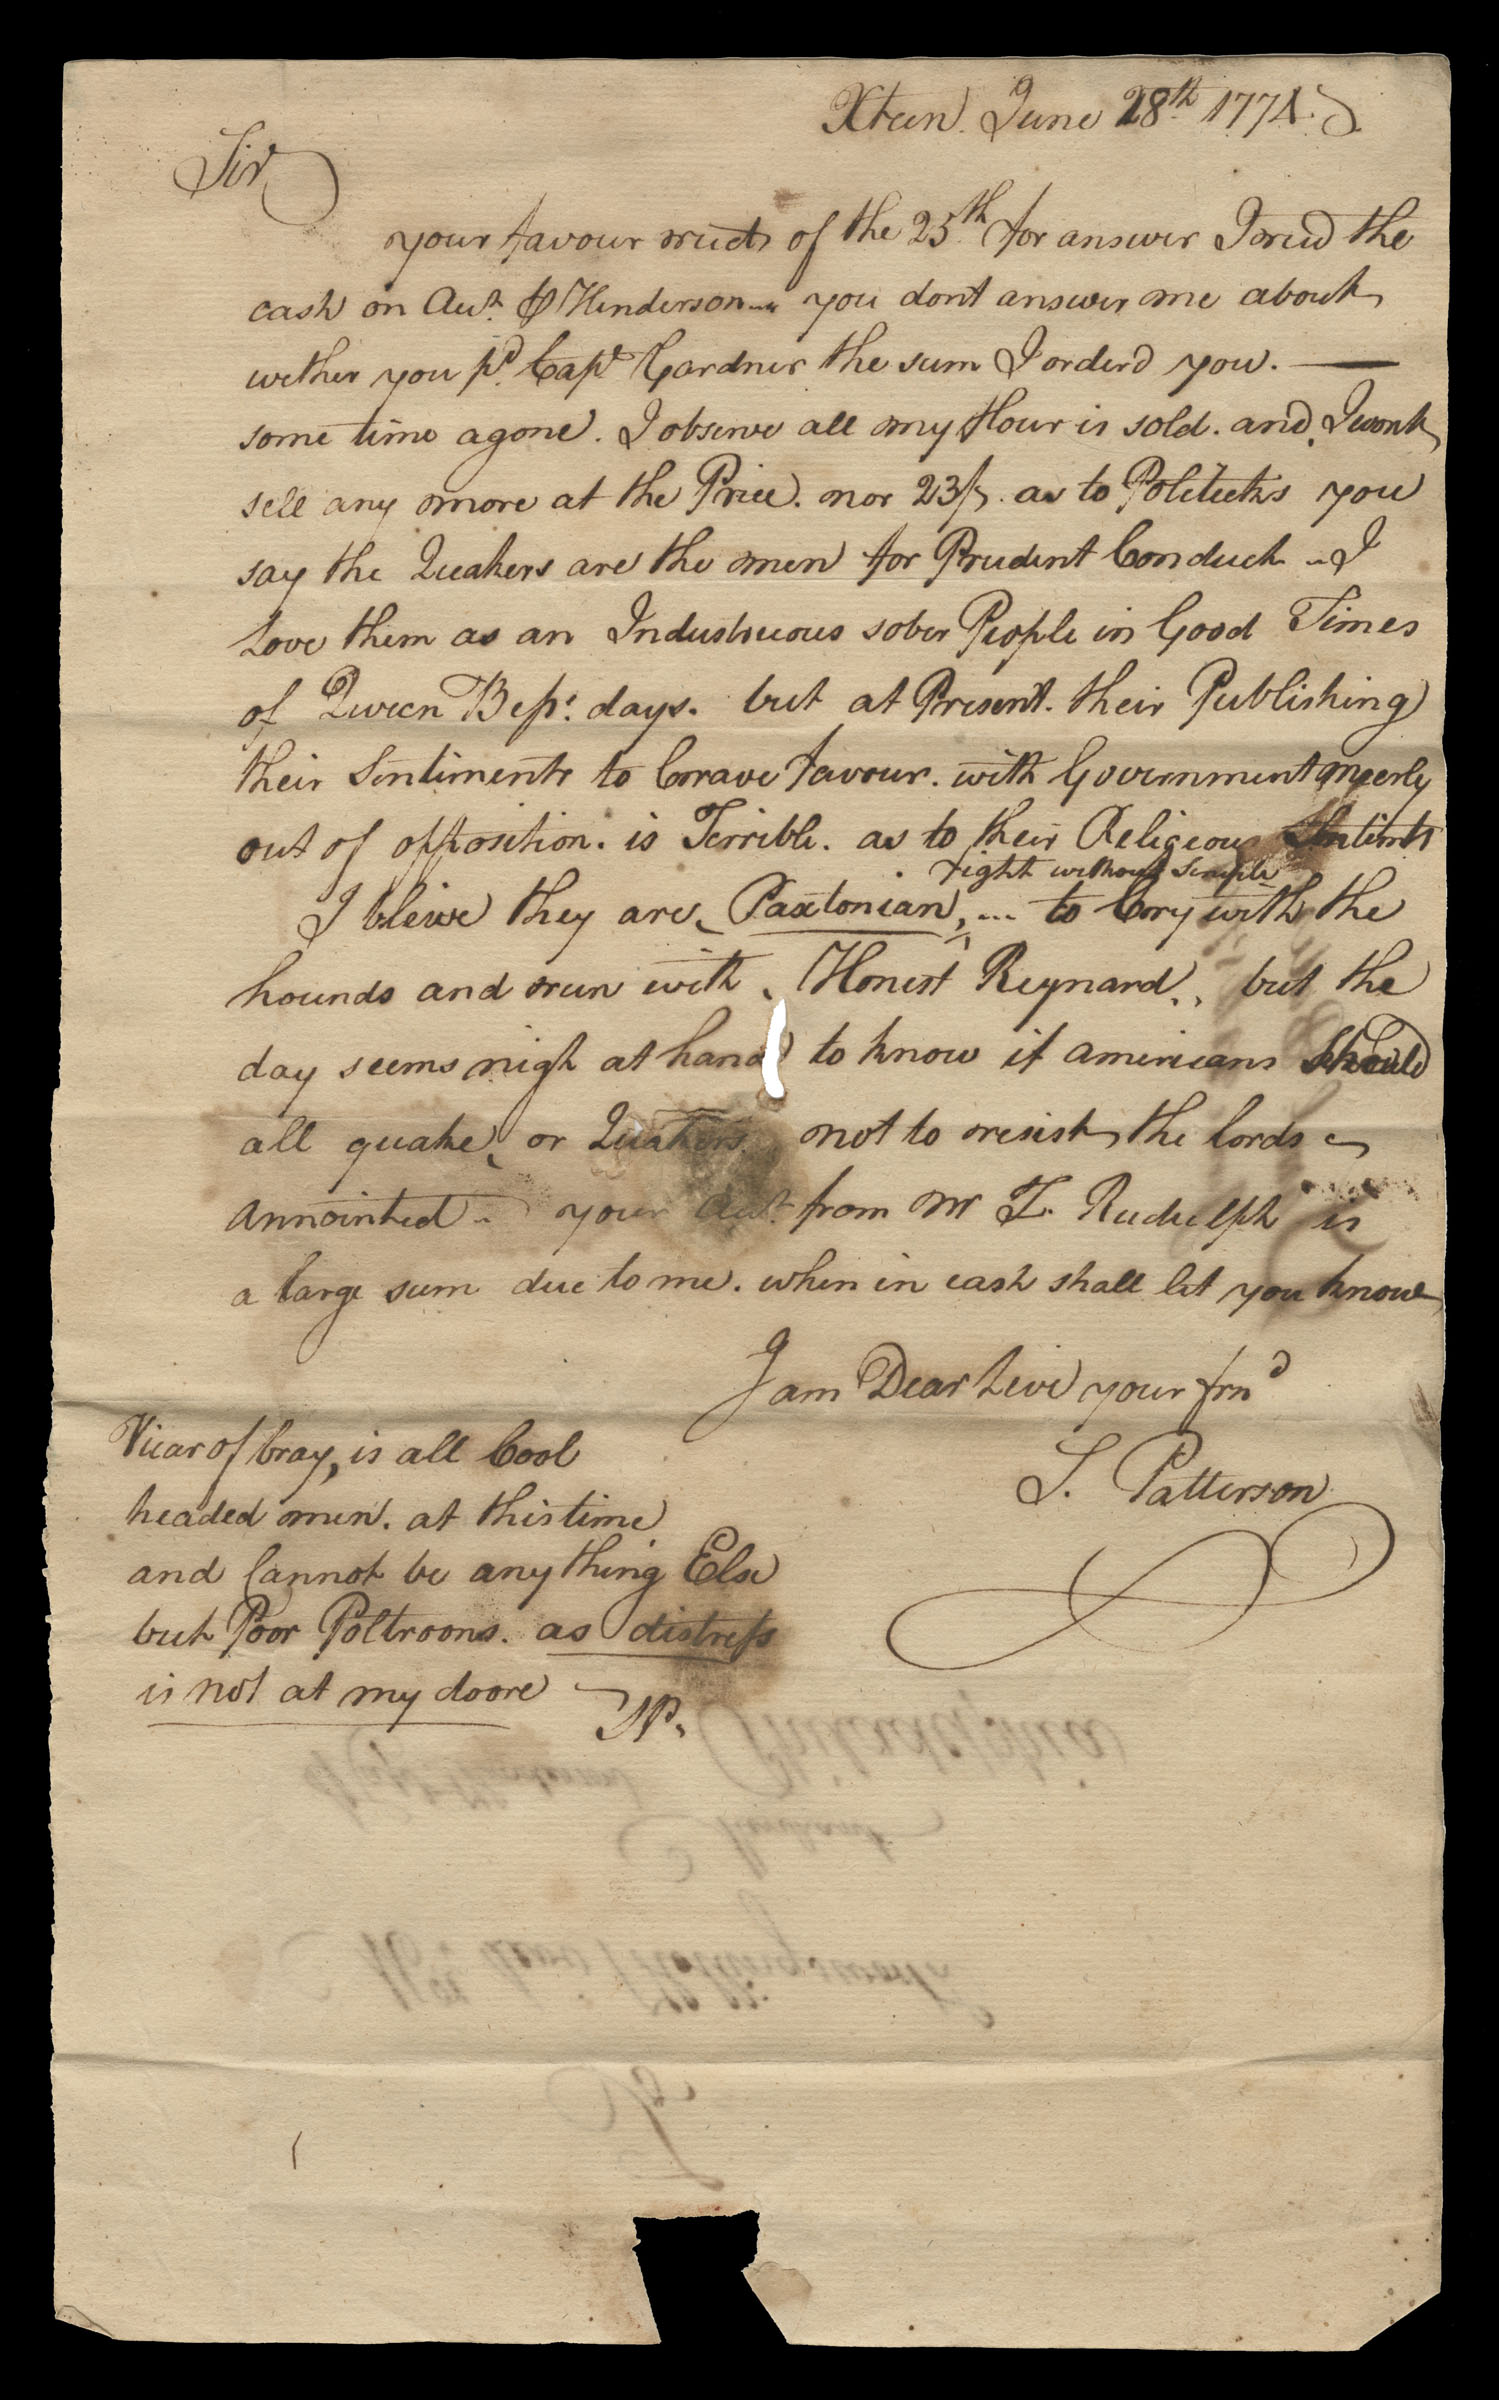 Xteen. June 28th 1774.
Sir
your favour recd of the 25th for answer I recd the
cash on Acct. of Henderson... you dont answer me about
wether you pd. Capt Gardner the sum I orderd you. —
some time agone. I observe all my flour is sold. and I wont
sell any more at the Price. nor 23/. as to Politicks you
say the Quakers are the men for Prudent Conduct.. I
Love them as an Industrious sober People in Good Times
of Queen Bess: days. but at Present. their Publishing
their Sentiments to Crave favour. with Government meerly
out of opposition. is Terrible. as to their Religeous Sentimts
right without Scruple
I bleive they are, Paxtonian, ... to Cry with the
hounds and run with, Honest Reynard,, but the
day seems nigh at hand to know if americans should
all quake, or Quakers not to resist the Lords
annointed.. your Acct. from Mr T. Rudulph is
a large sum due to me. when in cash shall let you know
I am Dear Levi your frnd
S. Patterson
Vicar of bray, is all Cool
headed men. at this time
and Cannot be any thing Else
but Poor Poltroons. as distress
is not at my doore
SP.
Philadelphia
Merchant
Mr Levi Hollingsworth
To